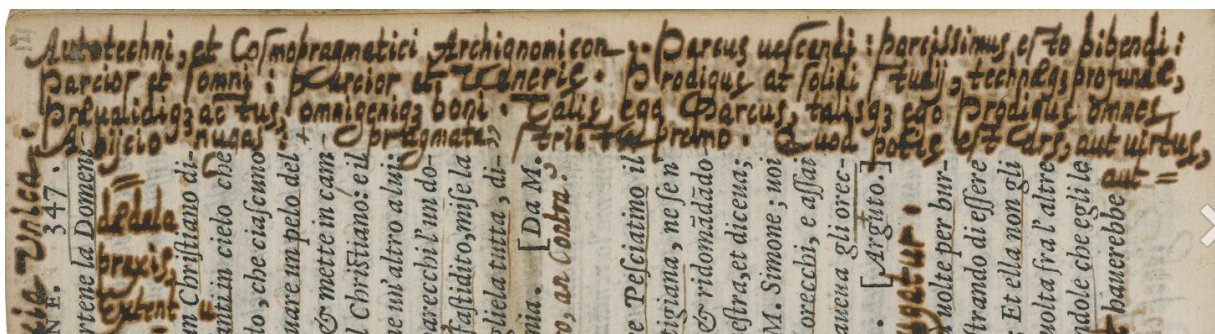 Autotechni, et Cosmopragmatici Archignomicon. Parcus uescendi: parcissimus esto bibendi:
Parcior et somni: parcior et Ueneris. Prodigus at solidi studij, technæq3 profundæ,
Præualidiq3 actus, omnigeniq3 boni. Talis ego Parcus, talisq3 ego Prodigus omnes
Abijcio nugas: pragmata premo. Quod potis est Ars, aut uirtus,
aut =
Unica,
347.
rtene la Domeni
dedala
praxis,
Extent
un Christiano di-
in cielo che
to, che ciascuno
uare un pelo del
& mette in cam
l Christiano: e il
se un'altro a lui
parecchi. un do-
fastidito, mise la
gliela tutta, di-
nia. [Da M.
o, an Contra?
e Pesciatino il
tigiana, ne se n'
& ridomādādo
estra, et diceua;
M. Simone; uoi
orecchi, e assai
aueua gli orec-
[Arguto.]
ugatur.
uolte per bur-
strando di essere
Et ella non gli
uolta fra l'altre
dole che egli la
hauerebbe